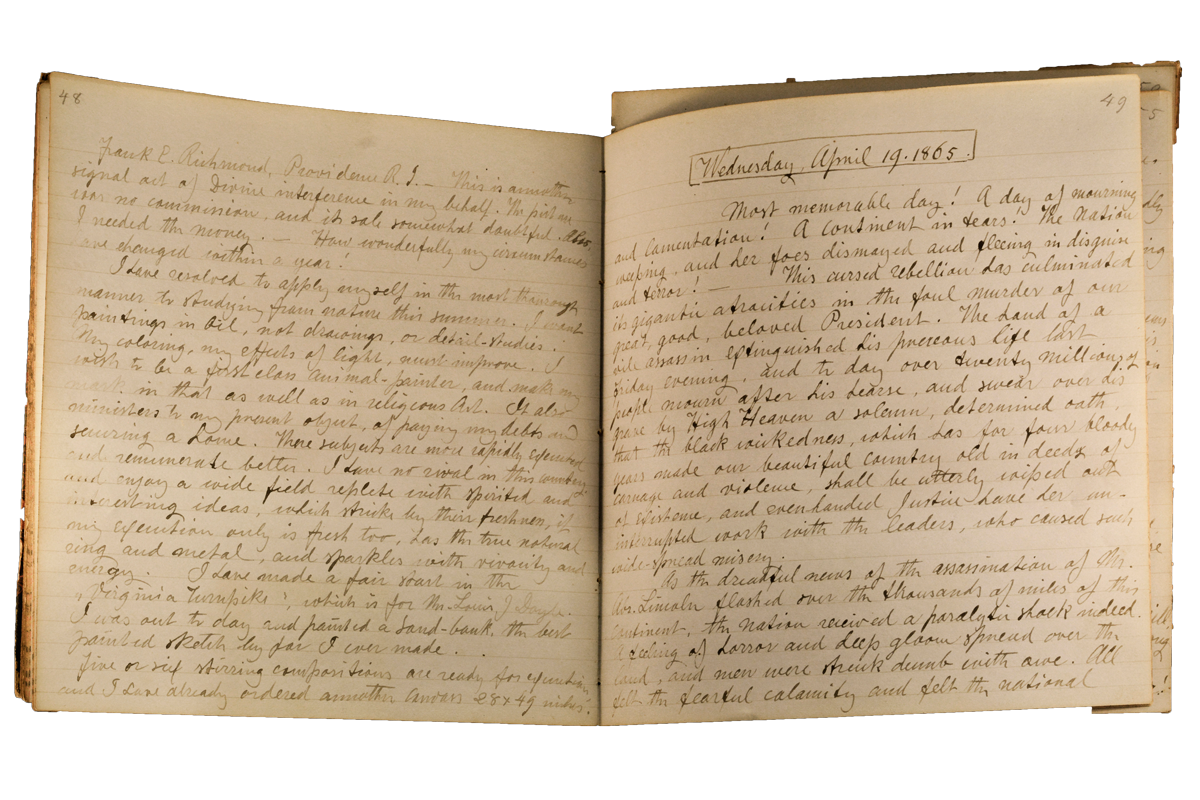 48
Frank E. Richmond, Providence R. I. — This is another
signal act of Divine interference in my behalf. The picture
was no commission, and its sale somewhat doubtful. Also
I needed the money. — How wonderfully my circumstances
have changed within a year!
I have resolved to apply myself in the most thorough
manner to studying from nature this summer. I want
paintings in Oil, not drawings, or detail-studies.
My coloring, my effects of light, must improve. I
wish to be a first class animal-painter, and make my
mark in that as well as in religious Art. It also
ministers to my present object, of paying my debts and
securing a home. These subjects are more rapidly executed
and remunerate better. I have no rival in this country
and enjoy a wide field replete with spirited and
interesting ideas, which strike by their freshness, if
my execution only is fresh too, has the true natural
ring and metal, and sparkles with vivacity and
energy. I have made a fair start in the
„Virginia Turnpike", which is for Mr. Louis J. Doyle.
I was out to day and painted a sand-bank, the best
painted sketch by far I ever made.
Five or six stirring compositions are ready for execution
and I have already ordered another canvas 28 x 49 inches.
49
Wednesday, April 19. 1865.
Most memorable day! A day of mourning
and lamentation! A continent in tears! The Nation
weeping, and her foes dismayed and fleeing in disguise
and terror! — This cursed rebellion has culminated
its gigantic atrocities in the foul murder of our
great, good, beloved President. The hand of a
vile assassin extinguished his precious life last
Friday evening, and to day over twenty millions of
people mourn after his hearse, and swear over his
grave by High Heaven a solemn, determined oath,
that the black wickedness, which has for four bloody
years made our beautiful country old in deeds of
carnage and violence, shall be utterly wiped out
of existence, and evenhanded Justice have her un-
interrupted work with the leaders, who caused such
wide-spread misery.
As the dreadful news of the assassination of Mr.
Abr. Lincoln flashed over the thousands of miles of this
continent, the nation received a paralytic shock indeed.
A feeling of horror and deep gloom spread over the
land, and men were struck dumb with awe. All
felt the fearful calamity and felt the national